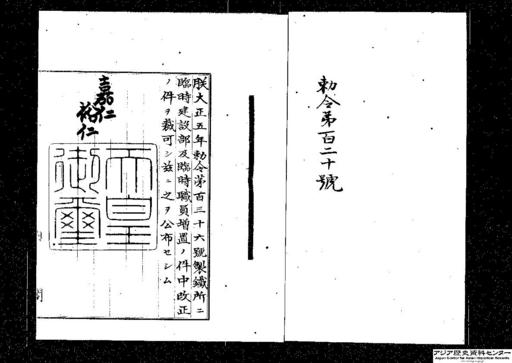 勅令第百二十號
朕大正五年勅令第百三十六號製鐵所ニ
臨時建設部及臨時職員增置ノ件中改正
ノ件ヲ裁可シ茲ニ之ヲ公布セシム
嘉仁
裕仁
天皇
御璽
アジア歴史資料センター
Japan Center for Asian Historical Records